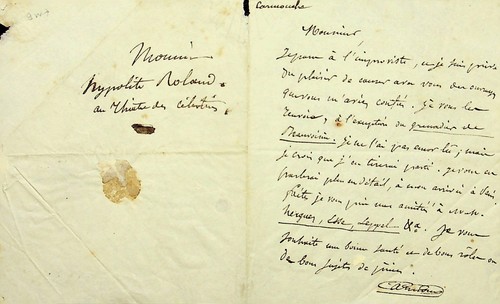 Monsieur
hypolite Roland.
au Théâtre des célestins
carmouche
Monsieur
Je pars à l'improviste, et je suis privé
du plaisir de causer avec vous des ouvrages
que vous m'aviez confiés. Je vous les
renvoie, à l'exception du grenadier de
je ne l'ai pas encor lu; mais
je crois que j'en tirerai parti. je vous en
parlerai plus en détail, à mon arrivée à
faites, je vous prie mes amitiés à
&a. Je vous
souhaite une bonne santé et de bons rôles ou
de bons sujets de pièces.